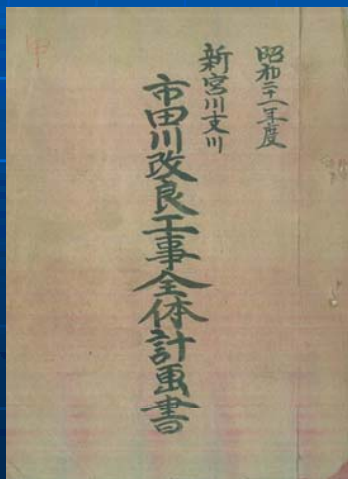 昭和二十一年度
新宮川支川
市田川改良工事全体計画書